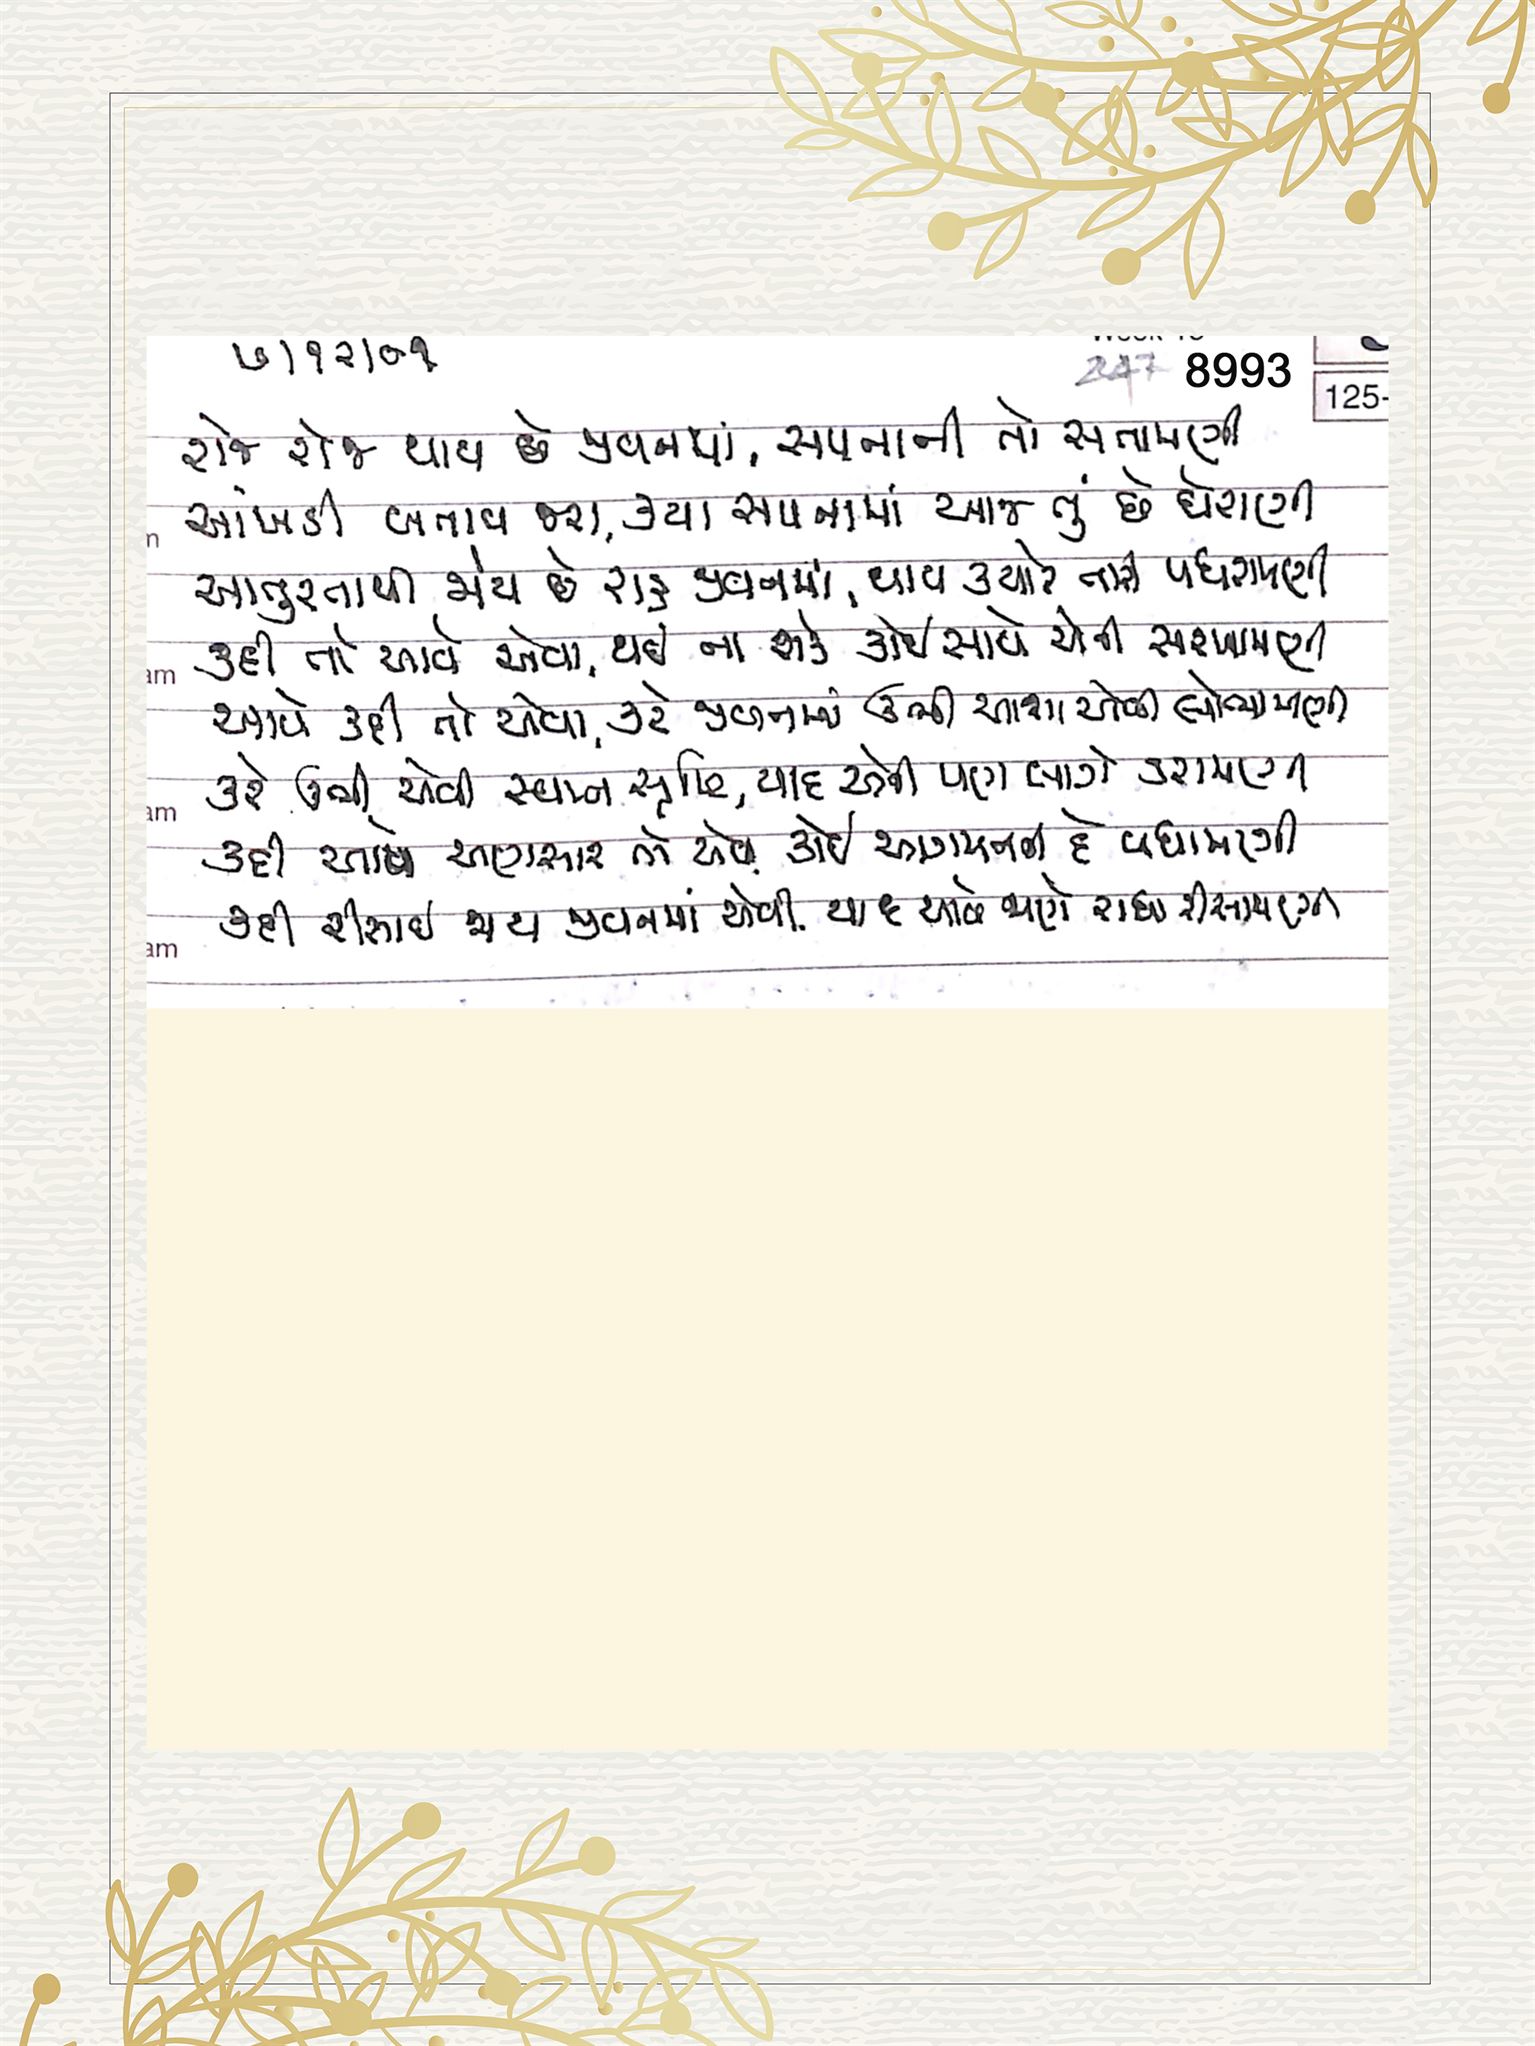 ૭/૧૨/૦૧
Week 18
247 8993
125-
રોજ રોજ થાય છે જીવનમાં, સપનાની તો સતામણી
આંખડી બતાવ જરા, ક્યા સપનામાં આજ તું છે ઘેરાણી
આતુરતાથી જોય છે રાહ જીવનમાં, થાય ક્યારે તારી પધરામણી
કદી તો આવે એવા, થઈ ના શકે કોઈ સાથે એની સરખામણી
આવે કદી તો એવા, કરે જીવનમાં ઊભી આશા એવી લોભામણી
કરે ઊભી એવી સ્વપ્ન સૃષ્ટિ, યાદ એની પણ લાગે ડરામણી
કદી આપે અણસાર તો એવા કોઈ આગમનની દે વધામણી
કદી રીસાઈ જાય જીવનમાં એવી. યાદ આવે જાણે રાધા રીસામણી
am
am
am